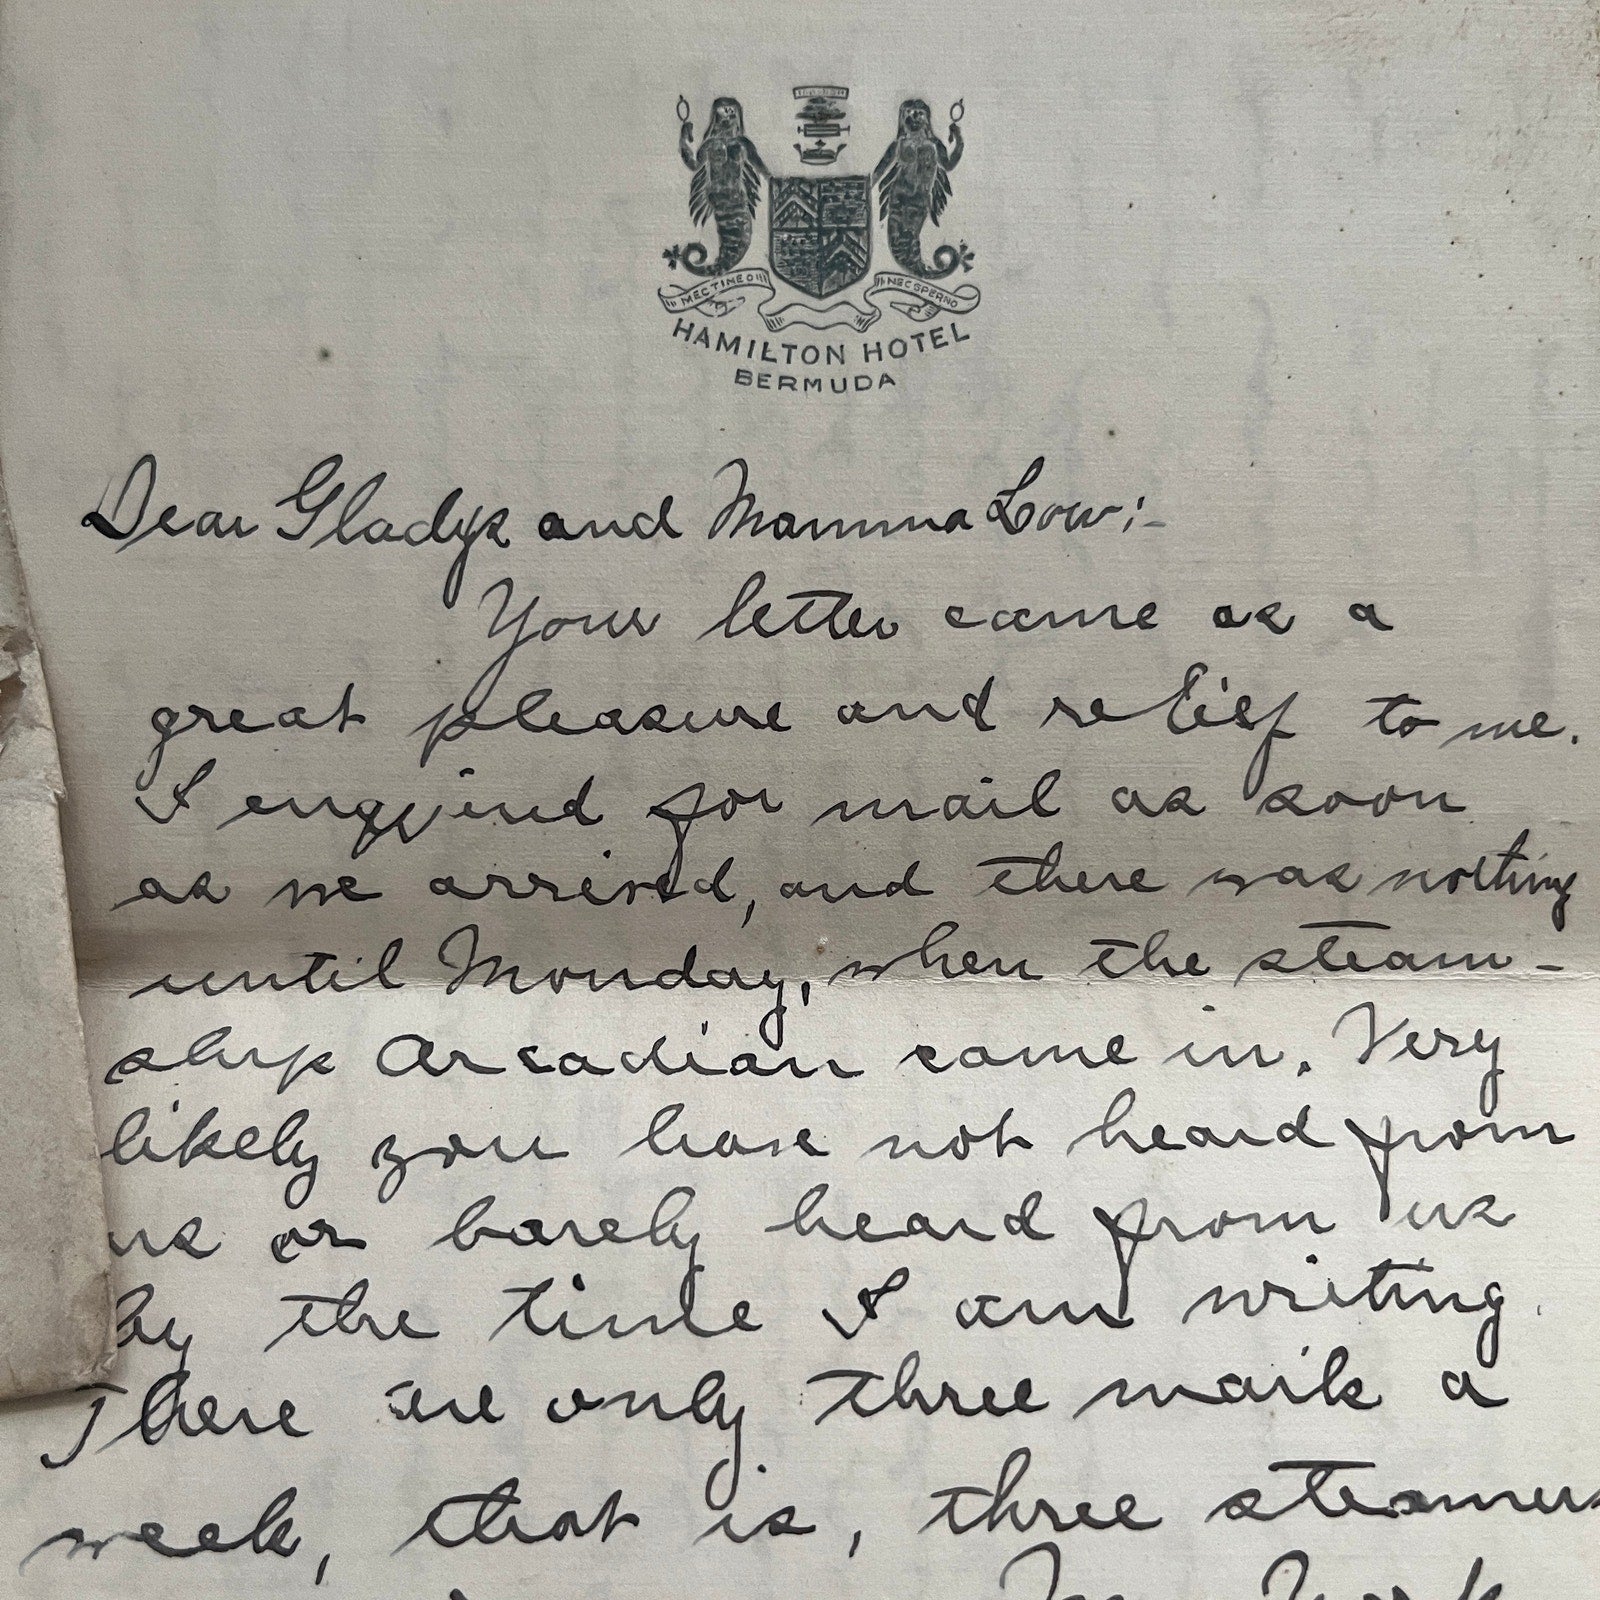 NEC TIMEO
NEC SPERNO
HAMILTON HOTEL
BERMUDA
Dear Gladys and Mamma Low:-
Your letter came as a
great pleasure and relief to me.
I enquired for mail as soon
as we arrived, and there was nothing
until Monday, when the steam-
ship Arcadian came in. Very
likely you have not heard from
us or barely heard from us
by the time I am writing.
There are only three mails a
week, that is, three steamers
New York